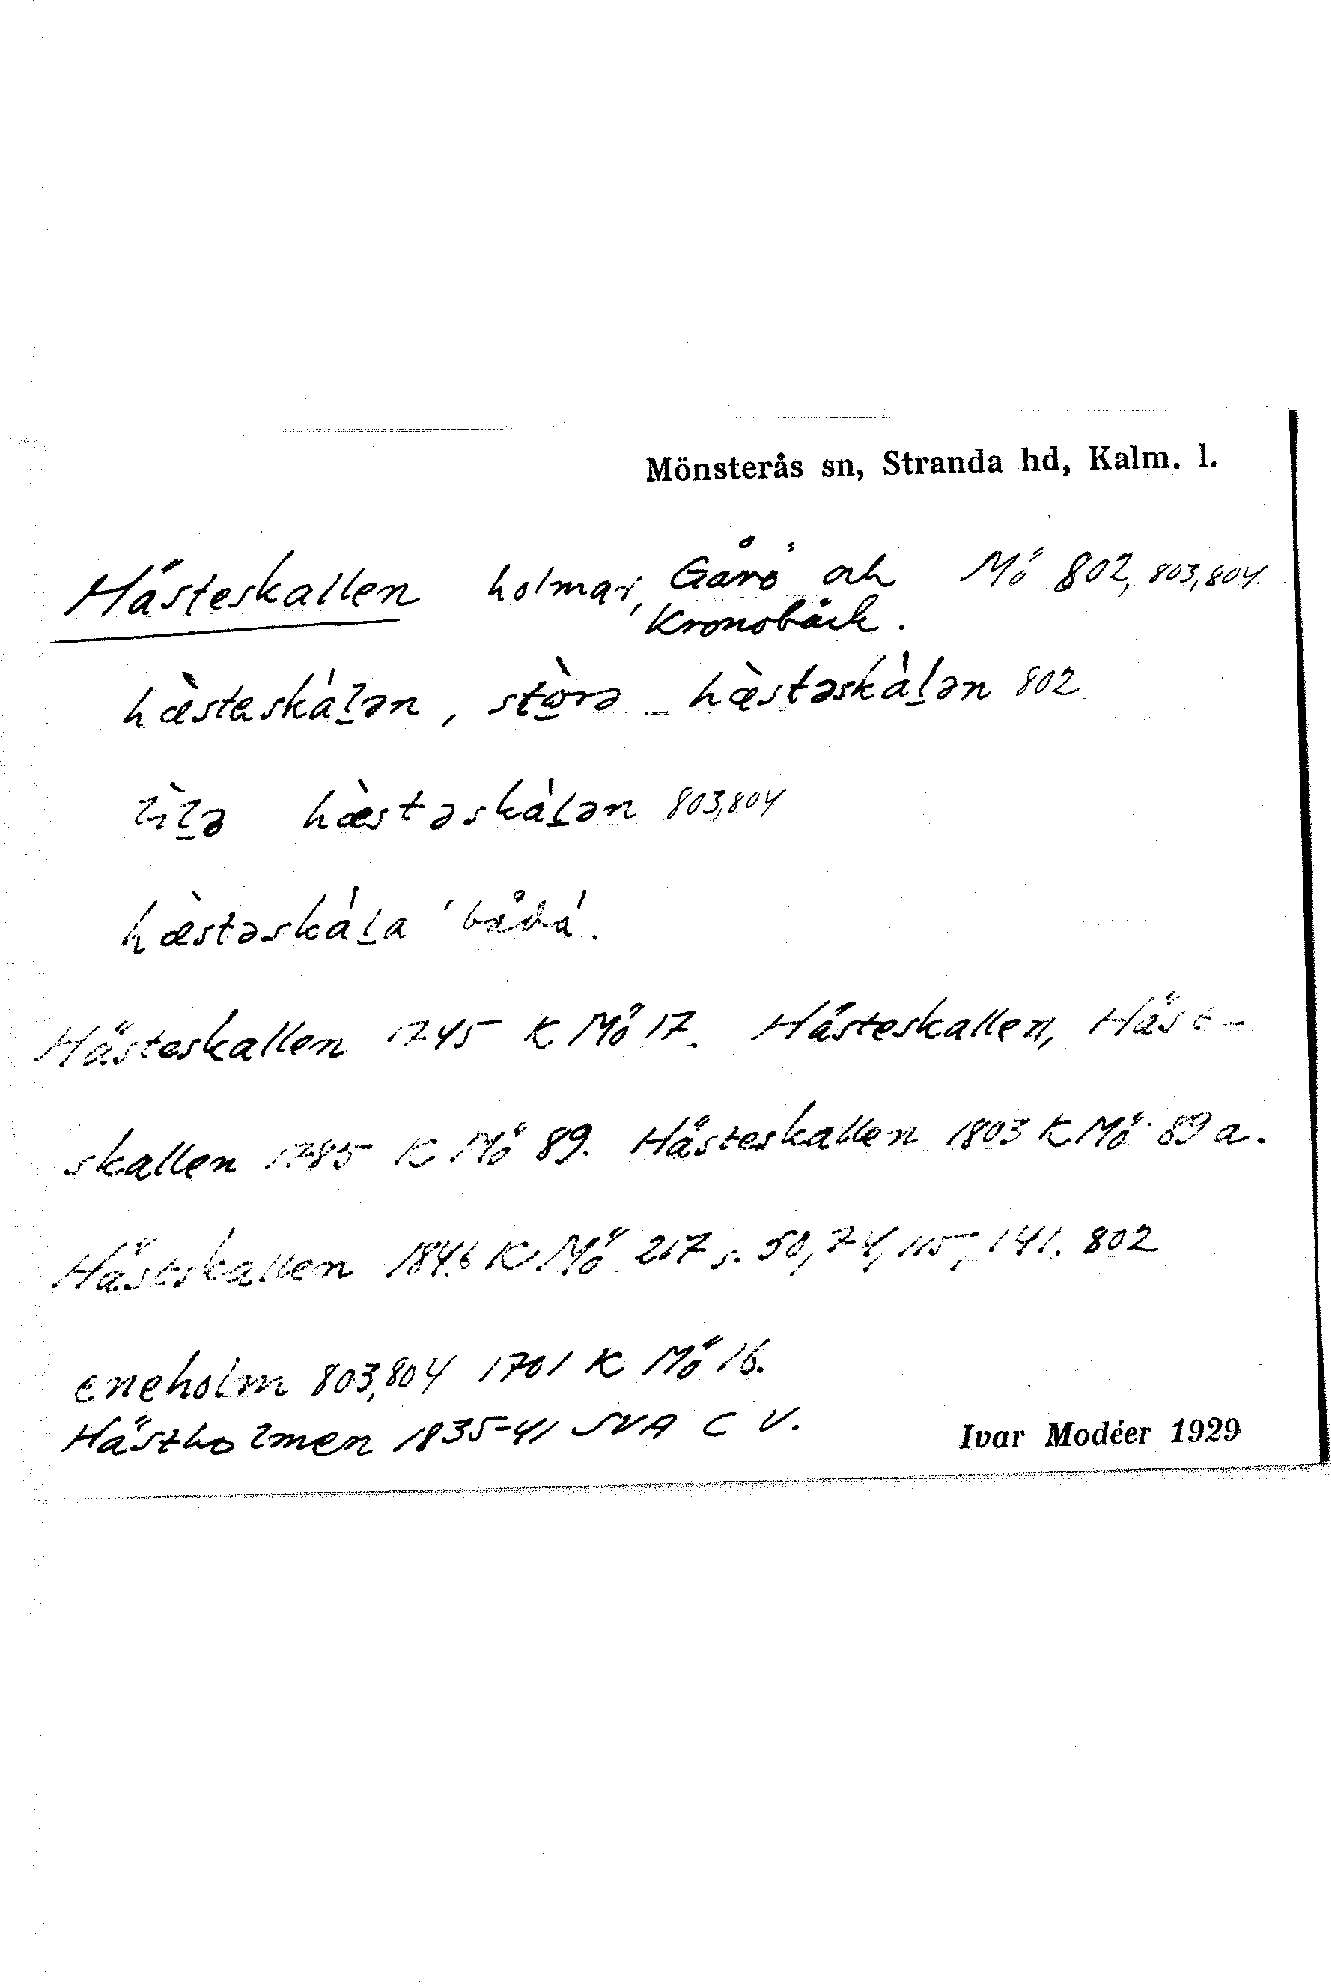 Mönsterås sn, Stranda hd, Kalm. l.
Hästeskallen holmar, Gårö och Mö 802, 803, 804.
Kronobäck.
hæ̀stəskáḻən, stò̱rə hæ̀stəskàḻən 802
lìḻə hæ̀stəskàḻən 803,804
hæ̀stəskàḻa 'båda'.
Hästeskallen 1745 K Mö 17. Hästeskallen, Häst-
skallen 1785 K Mö 89. Hästeskallen 1803 K Mö 89 a.
Hästskallen 1846 K Mö 217 s. 50, 74, 115, 141. 802
eneholm 803,804 1701 K Mö 16.
Hästholmen 1835-41 SVA C V.
Ivar Modéer 1929